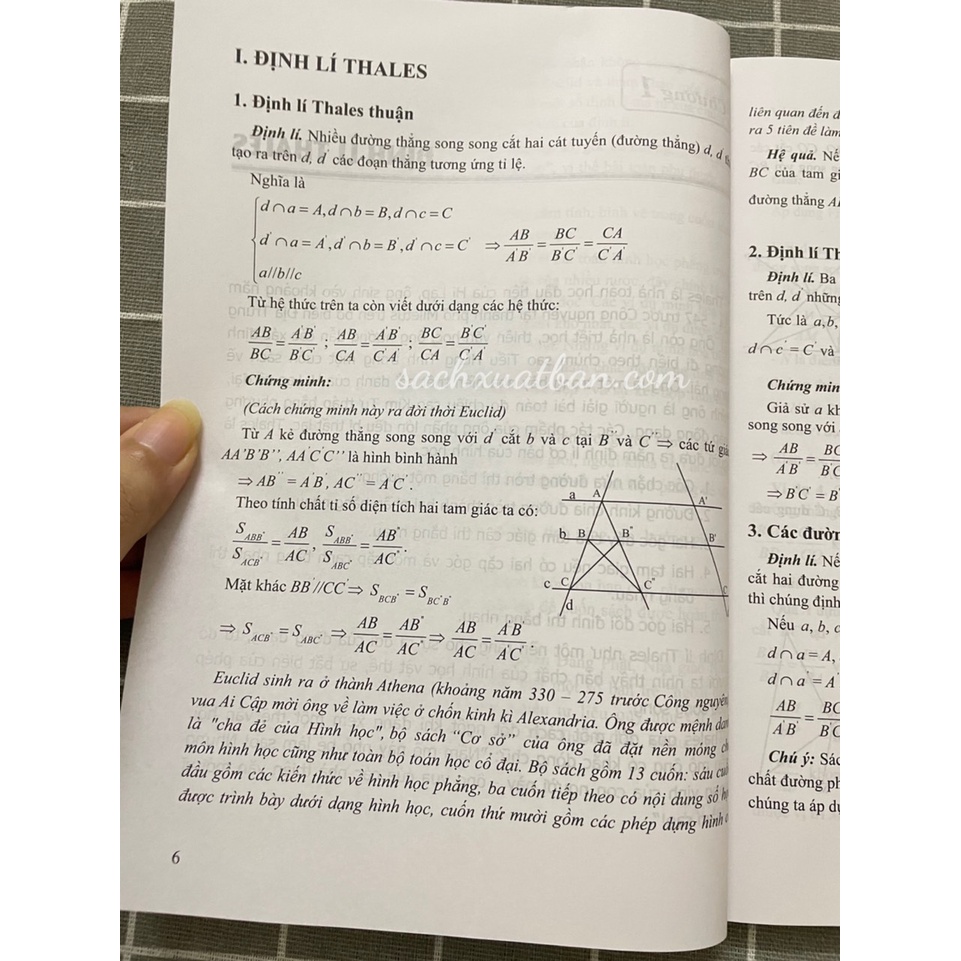 I. ĐỊNH LÍ THALES
1. Định lí Thales thuận
Định lí. Nhiều đường thẳng song song cắt hai cát tuyến (đường thẳng) d, d'
tạo ra trên d, d' các đoạn thẳng tương ứng tỉ lệ.
Nghĩa là
d∩a = A, d∩b = B, d∩c = C
d'∩a = A', d'∩b = B', d'∩c = C' ⇒ AB/A'B' = BC/B'C' = CA/C'A'
a//b//c
Từ hệ thức trên ta còn viết dưới dạng các hệ thức:
AB/BC = A'B'/B'C' ; AB/CA = A'B'/C'A' ; BC/CA = B'C'/C'A'
sachxuatban.com
Chứng minh:
(Cách chứng minh này ra đời thời Euclid)
Từ A kẻ đường thẳng song song với d' cắt b và c tại B'' và C'' ⇒ các tứ giác
AA'B'B'', AA'C'C'' là hình bình hành
⇒ AB'' = A'B', AC'' = A'C'.
Theo tính chất tỉ số diện tích hai tam giác ta có:
S_ABB''/S_ACB'' = AB/AC, S_ABB''/S_ABC'' = AB''/AC''.
Mặt khác BB''//CC'' ⇒ S_BCB'' = S_BC''B''
⇒ S_ACB'' = S_ABC'' ⇒ AB/AC = AB''/AC'' ⇒ AB/AC = A'B'/A'C'.
a A A'
b B B'' B'
c C C''
d
Euclid sinh ra ở thành Athena (khoảng năm 330 – 275 trước Công nguyên
vua Ai Cập mời ông về làm việc ở chốn kinh kì Alexandria. Ông được mệnh dan
là "cha đẻ của Hình học", bộ sách “Cơ sở” của ông đã đặt nền móng ch
môn hình học cũng như toàn bộ toán học cổ đại. Bộ sách gồm 13 cuốn: sáu cuố
đầu gồm các kiến thức về hình học phẳng, ba cuốn tiếp theo có nội dung số h
được trình bày dưới dạng hình học, cuốn thứ mười gồm các phép dựng hình
6
liên quan đến
ra 5 tiên đề làm
Hệ quả. Nế
BC của tam gi
đường thẳng
2. Định lí Th
Định lí. Ba
trên d, d' những
Tức là a, b,
d∩c' = C' và
Chứng min
Giả sử a kh
song song với
⇒ AB/A'B' = BC/B'C
⇒ B'C' = B'
3. Các đườn
Định lí. Nế
cắt hai đường
thì chúng định
Nếu a, b, c
d∩a = A,
d∩a' = A'
AB/A'B' = BC/B'C
Chú ý: Các
chất đường ph
chúng ta áp dụ